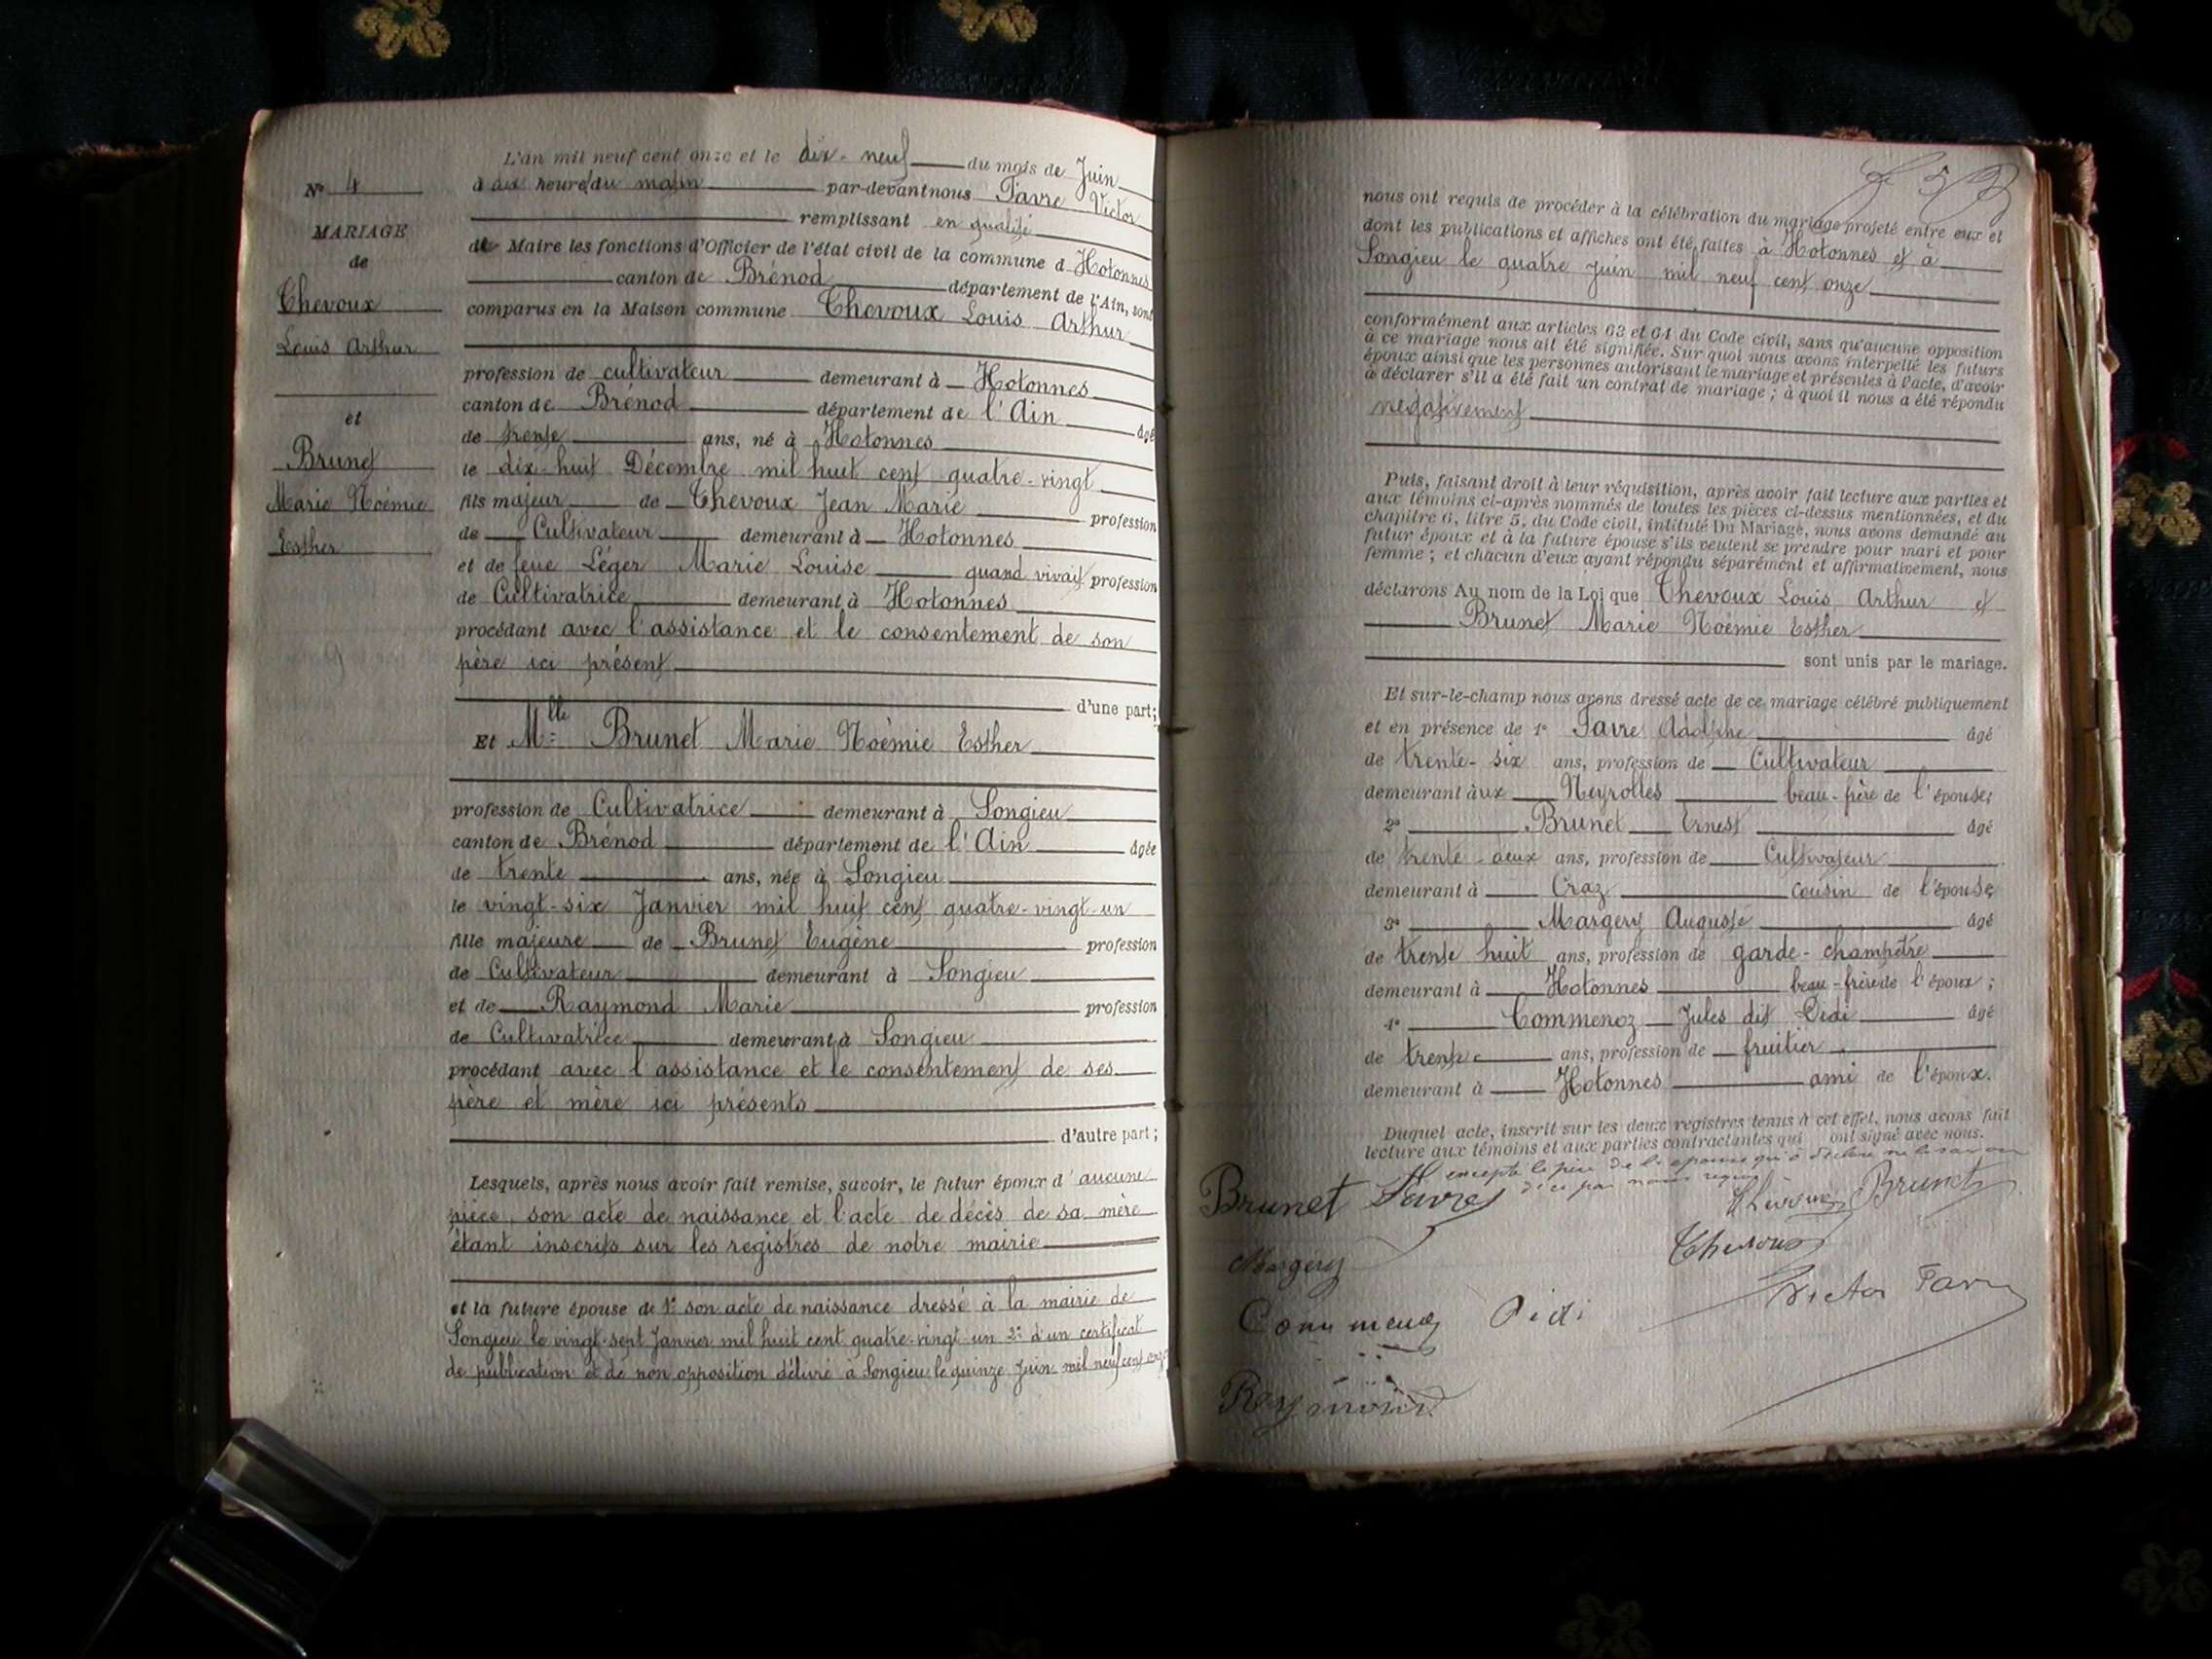 N° 4
MARIAGE
de
Chevoux
Louis Arthur
et
Brunet
Marie Noémie
Esther
L'an mil neuf cent onze et le dix-neuf du mois de Juin
à dix heures du matin par-devant nous Favre Victor
remplissant en qualité
de Maire les fonctions d'Officier de l'état civil de la commune d Hotonnes
canton de Brénod département de l'Ain, sont
comparus en la Maison commune Chevoux Louis Arthur
profession de cultivateur demeurant à Hotonnes
canton de Brénod département de l'Ain âgé
de trente ans, né à Hotonnes
le dix-huit Décembre mil huit cent quatre-vingt
fils majeur de Chevoux Jean Marie profession
de Cultivateur demeurant à Hotonnes
et de feue Léger Marie Louise quand vivait profession
de Cultivatrice demeurant à Hotonnes
procédant avec l'assistance et le consentement de son
père ici présent
d'une part;
Et Mlle Brunet Marie Noémie Esther
profession de Cultivatrice demeurant à Songieu
canton de Brénod département de l'Ain âgée
de trente ans, née à Songieu
le vingt-six Janvier mil huit cent quatre-vingt-un
fille majeure de Brunet Eugène profession
de Cultivateur demeurant à Songieu
et de Raymond Marie profession
de Cultivatrice demeurant à Songieu
procédant avec l'assistance et le consentement de ses
père et mère ici présents
d'autre part;
Lesquels, après nous avoir fait remise, savoir, le futur époux d'aucune
pièce, son acte de naissance et l'acte de décès de sa mère
étant inscrits sur les registres de notre mairie
et la future épouse de 1° son acte de naissance dressé à la mairie de
Songieu le vingt-sept Janvier mil huit cent quatre-vingt-un 2° d'un certificat
de publication et de non opposition délivré à Songieu le quinze Juin mil neuf cent onze
nous ont requis de procéder à la célébration du mariage projeté entre eux et
dont les publications et affiches ont été faites à Hotonnes et à
Songieu le quatre Juin mil neuf cent onze
conformément aux articles 63 et 64 du Code civil, sans qu'aucune opposition
à ce mariage nous ait été signifiée. Sur quoi nous avons interpellé les futurs
époux ainsi que les personnes autorisant le mariage et présentes à l'acte, d'avoir
à déclarer s'il a été fait un contrat de mariage; à quoi il nous a été répondu
négativement
Puis, faisant droit à leur réquisition, après avoir fait lecture aux parties et
aux témoins ci-après nommés de toutes les pièces ci-dessus mentionnées, et du
chapitre 6, titre 5, du Code civil, intitulé Du Mariage, nous avons demandé au
futur époux et à la future épouse s'ils veulent se prendre pour mari et pour
femme; et chacun d'eux ayant répondu séparément et affirmativement, nous
déclarons Au nom de la Loi que Chevoux Louis Arthur et
Brunet Marie Noémie Esther
sont unis par le mariage.
Et sur-le-champ nous avons dressé acte de ce mariage célébré publiquement
et en présence de 1° Favre Adolphe âgé
de trente-six ans, profession de Cultivateur
demeurant aux Neyrolles beau-frère de l'épouse;
2° Brunet Ernest âgé
de trente-deux ans, profession de Cultivateur
demeurant à Craz cousin de l'épouse;
3° Margery Auguste âgé
de trente huit ans, profession de garde-champêtre
demeurant à Hotonnes beau-frère de l'époux;
4° Commenoz Jules dit Didi âgé
de trente ans, profession de fruitier
demeurant à Hotonnes ami de l'époux.
Duquel acte, inscrit sur les deux registres tenus à cet effet, nous avons fait
lecture aux témoins et aux parties contractantes qui ont signé avec nous.
excepté le père de l'épouse qui a déclaré ne le savoir
de ce par nous requis
Brunet Favre Chevoux Brunet
Margery Chevoux
Commenoz Didi Victor Favre
Reymond